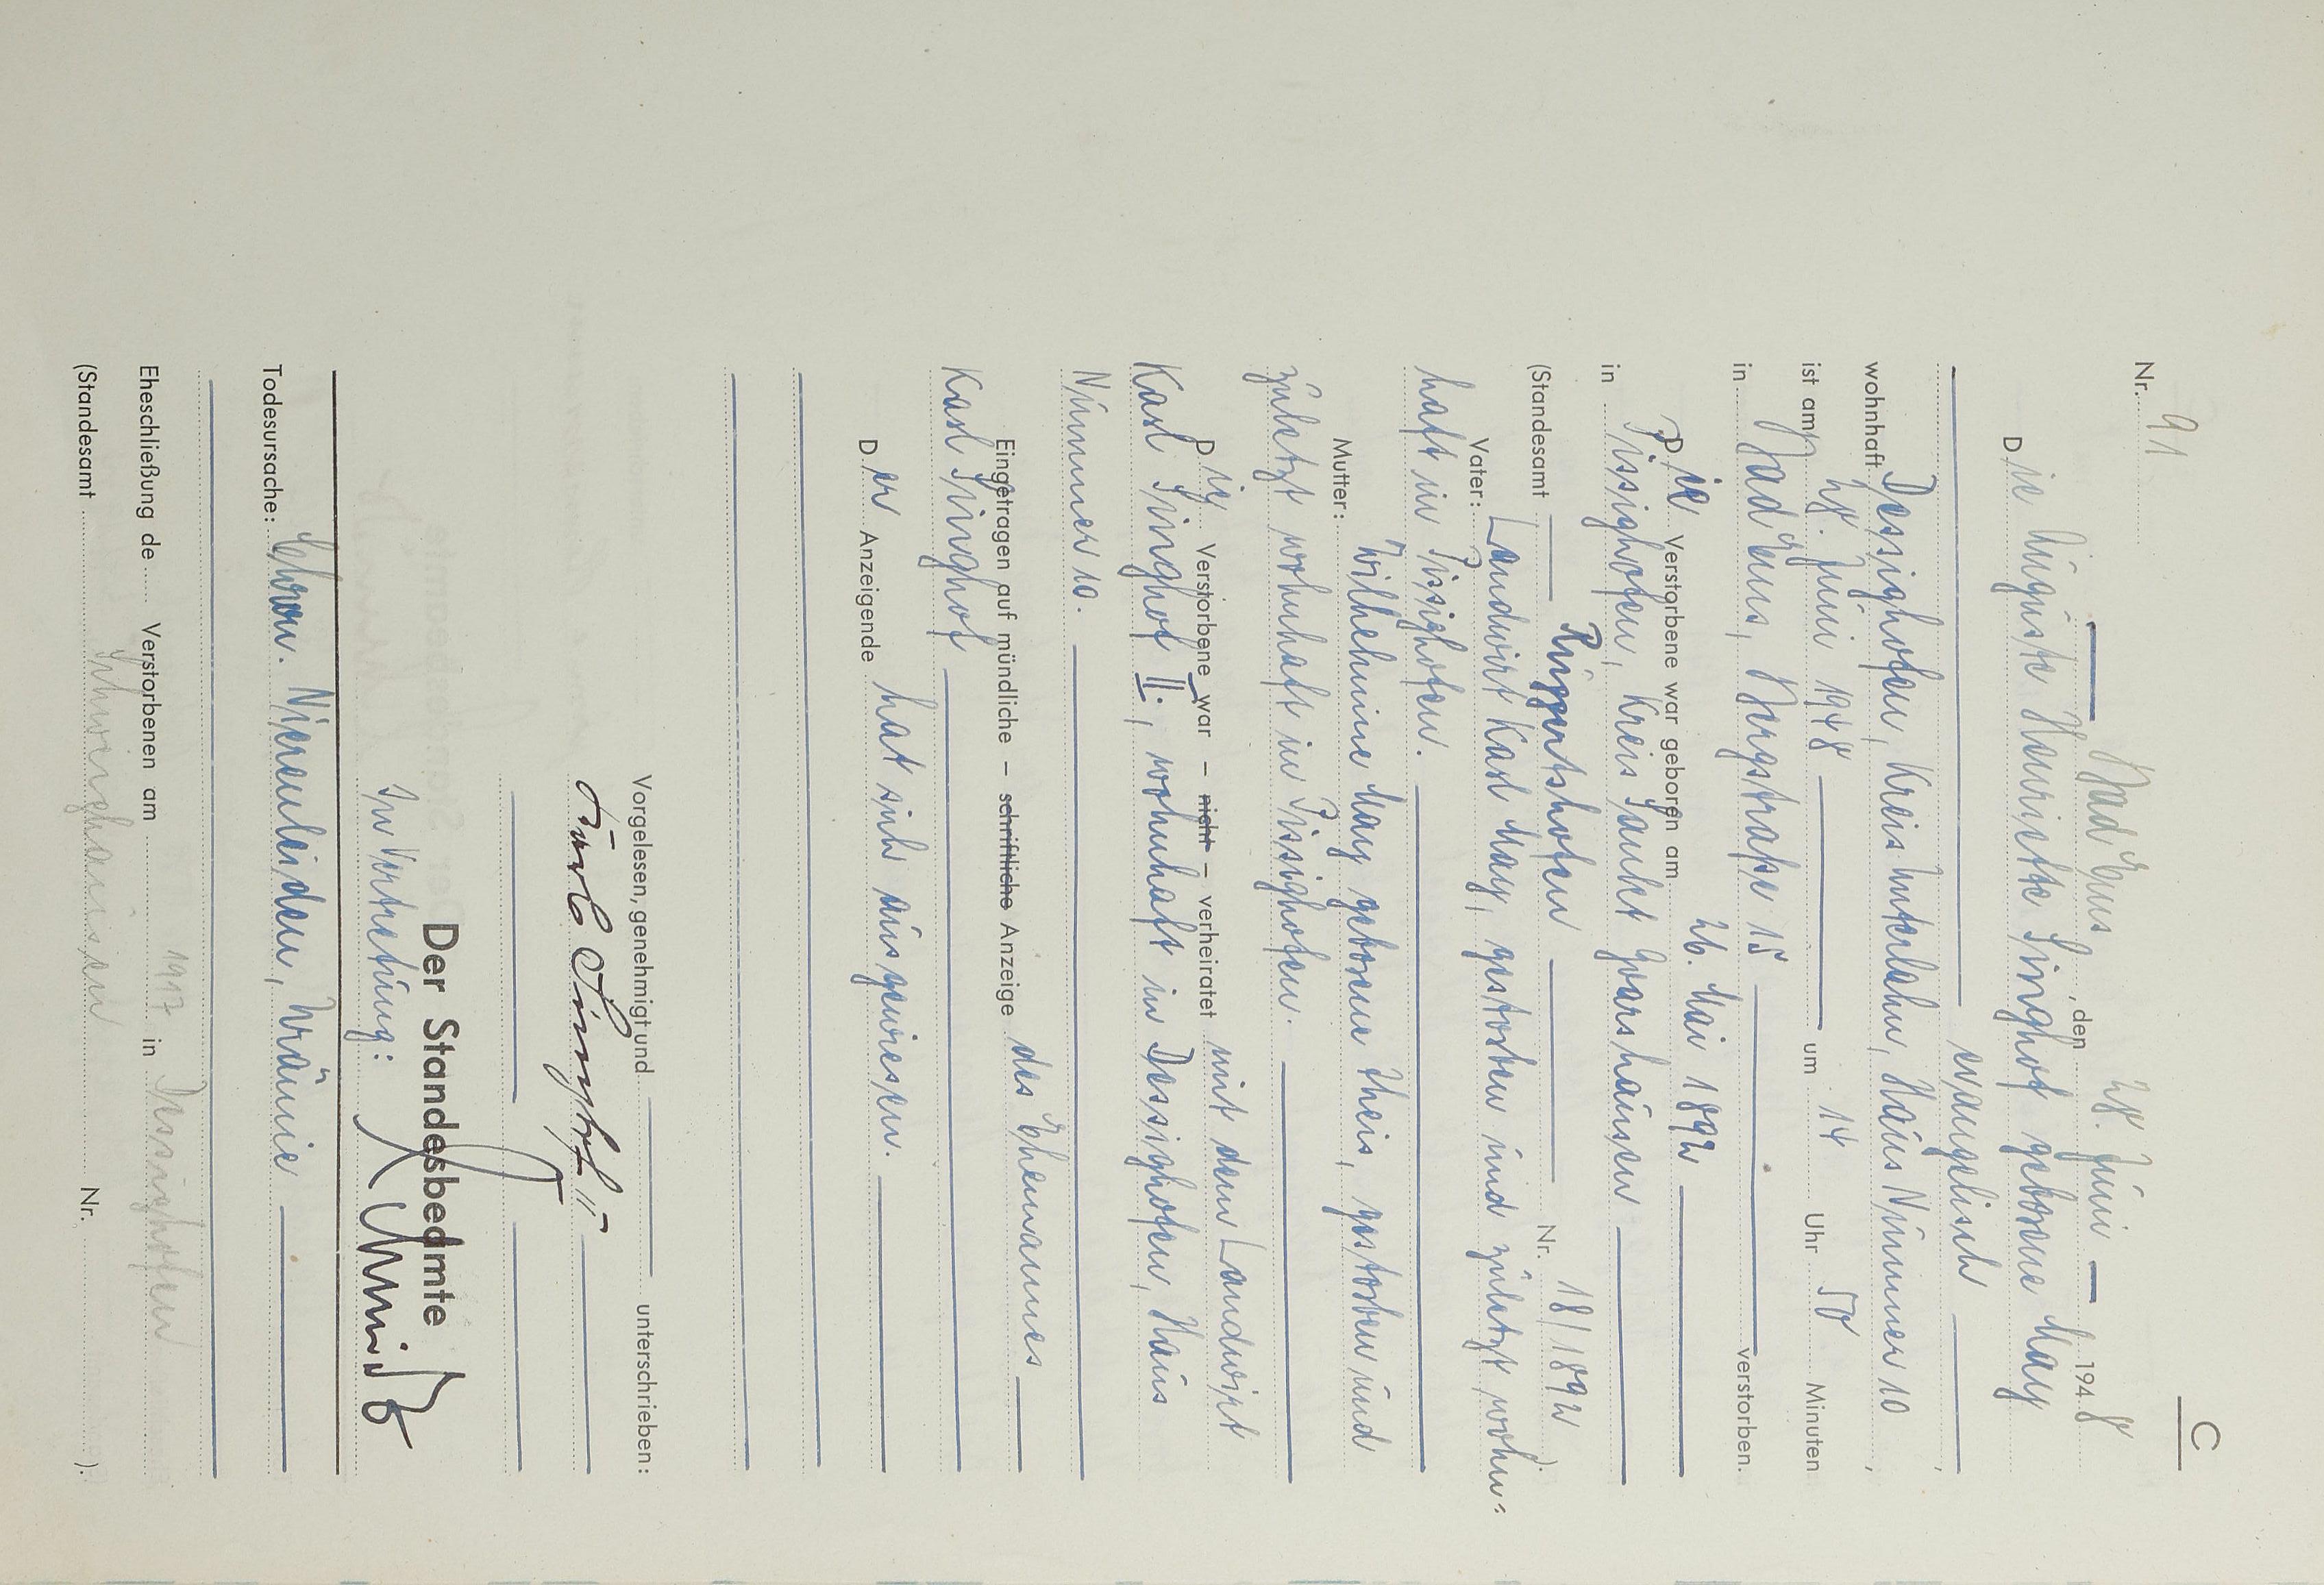 C
Nr. 91
Bad Ems, den 28. Juni 1948
Die Auguste Henriette Singhof geborene May
evangelisch,
wohnhaft Dessighofen, Kreis Unterlahn, Haus Nummer 10,
ist am 28. Juni 1948 um 14 Uhr 50 Minuten
in Bad Ems, Bergstraße 15 verstorben.
Die Verstorbene war geboren am 26. Mai 1892
in Pissighofen, Kreis Sankt Goarshausen
(Standesamt Ruppertshofen Nr. 18/1892).
Vater: Landwirt Karl May, gestorben und zuletzt wohn-
haft in Pissighofen.
Mutter: Wilhelmine May geborene Theis, gestorben und
zuletzt wohnhaft in Pissighofen.
Die Verstorbene war – nicht – verheiratet mit dem Landwirt
Karl Singhof II., wohnhaft in Dessighofen, Haus
Nummer 10.
Eingetragen auf mündliche – schriftliche Anzeige des Ehemannes
Karl Singhof
Der Anzeigende hat sich ausgewiesen.
Vorgelesen, genehmigt und unterschrieben:
Karl Singhof II
Der Standesbeamte
In Vertretung:
Todesursache: Chron. Nierenleiden, Urämie
Eheschließung de Verstorbenen am 1917 in Dessighofen
(Standesamt Schweighausen Nr. ).